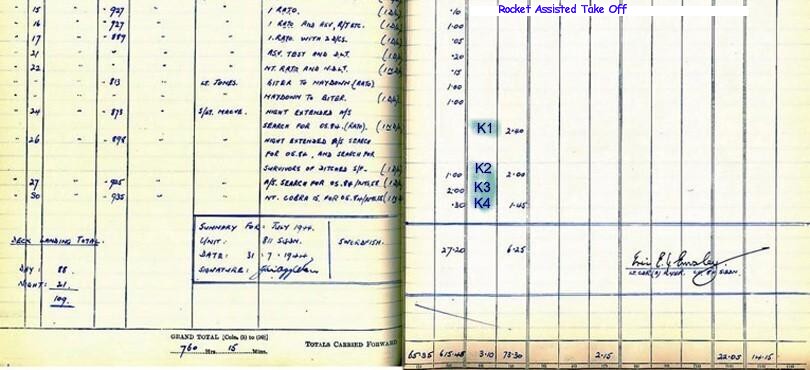 Rocket Assisted Take Off
15 " 927 1 RATO. .10
16 " 727 1 RATO AND ASV, R/T ETC. 1.00
17 " 889 1. RATO. WITH 2 D/CS. .05
21 " " ASV. TEST AND D.L.T. .20
22 " " NT. RATO AND N.D.L.T. .15
" " 813 LT. JONES. BITER TO MAYDOWN (RATO) 1.00
" " " " MAYDOWN TO BITER. 1.00
24 " 873 NIGHT EXTENDED A/S
SEARCH FOR OS.84. (RATO). K1 2.40
26 " 898 " NIGHT EXTENDED A/S SEARCH
FOR OS.84, AND SEARCH FOR K2
SURVIVORS OF DITCHED S/F. 1.00 2.00
27 " 925 " A/S. SEARCH FOR OS.84/ K3 2.00
30 " 935 " NT. COBRA 15. FOR OS.84/ K4 .30 1.45
SUMMARY FOR: JULY 1944.
UNIT: 811 SQDN. SWORDFISH.
DATE: 31 . 7 . 1944
SIGNATURE:
27.20 6.25
DECK LANDING TOTAL.
DAY: 88.
NIGHT: 21.
109.
GRAND TOTAL [Cols. (1) to (10)]
760 Hrs. 15 Mins.
TOTALS CARRIED FORWARD
65.35 615.45 3.10 73.30 2.15 22.05 14.15